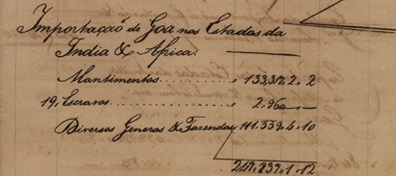 Importação de Goa nos Estados da
India & Africa.
Mantimentos 133,372.2
19, Escravos 2.960
Diversos Generos & Fazendas 111.559.4.10
1.12